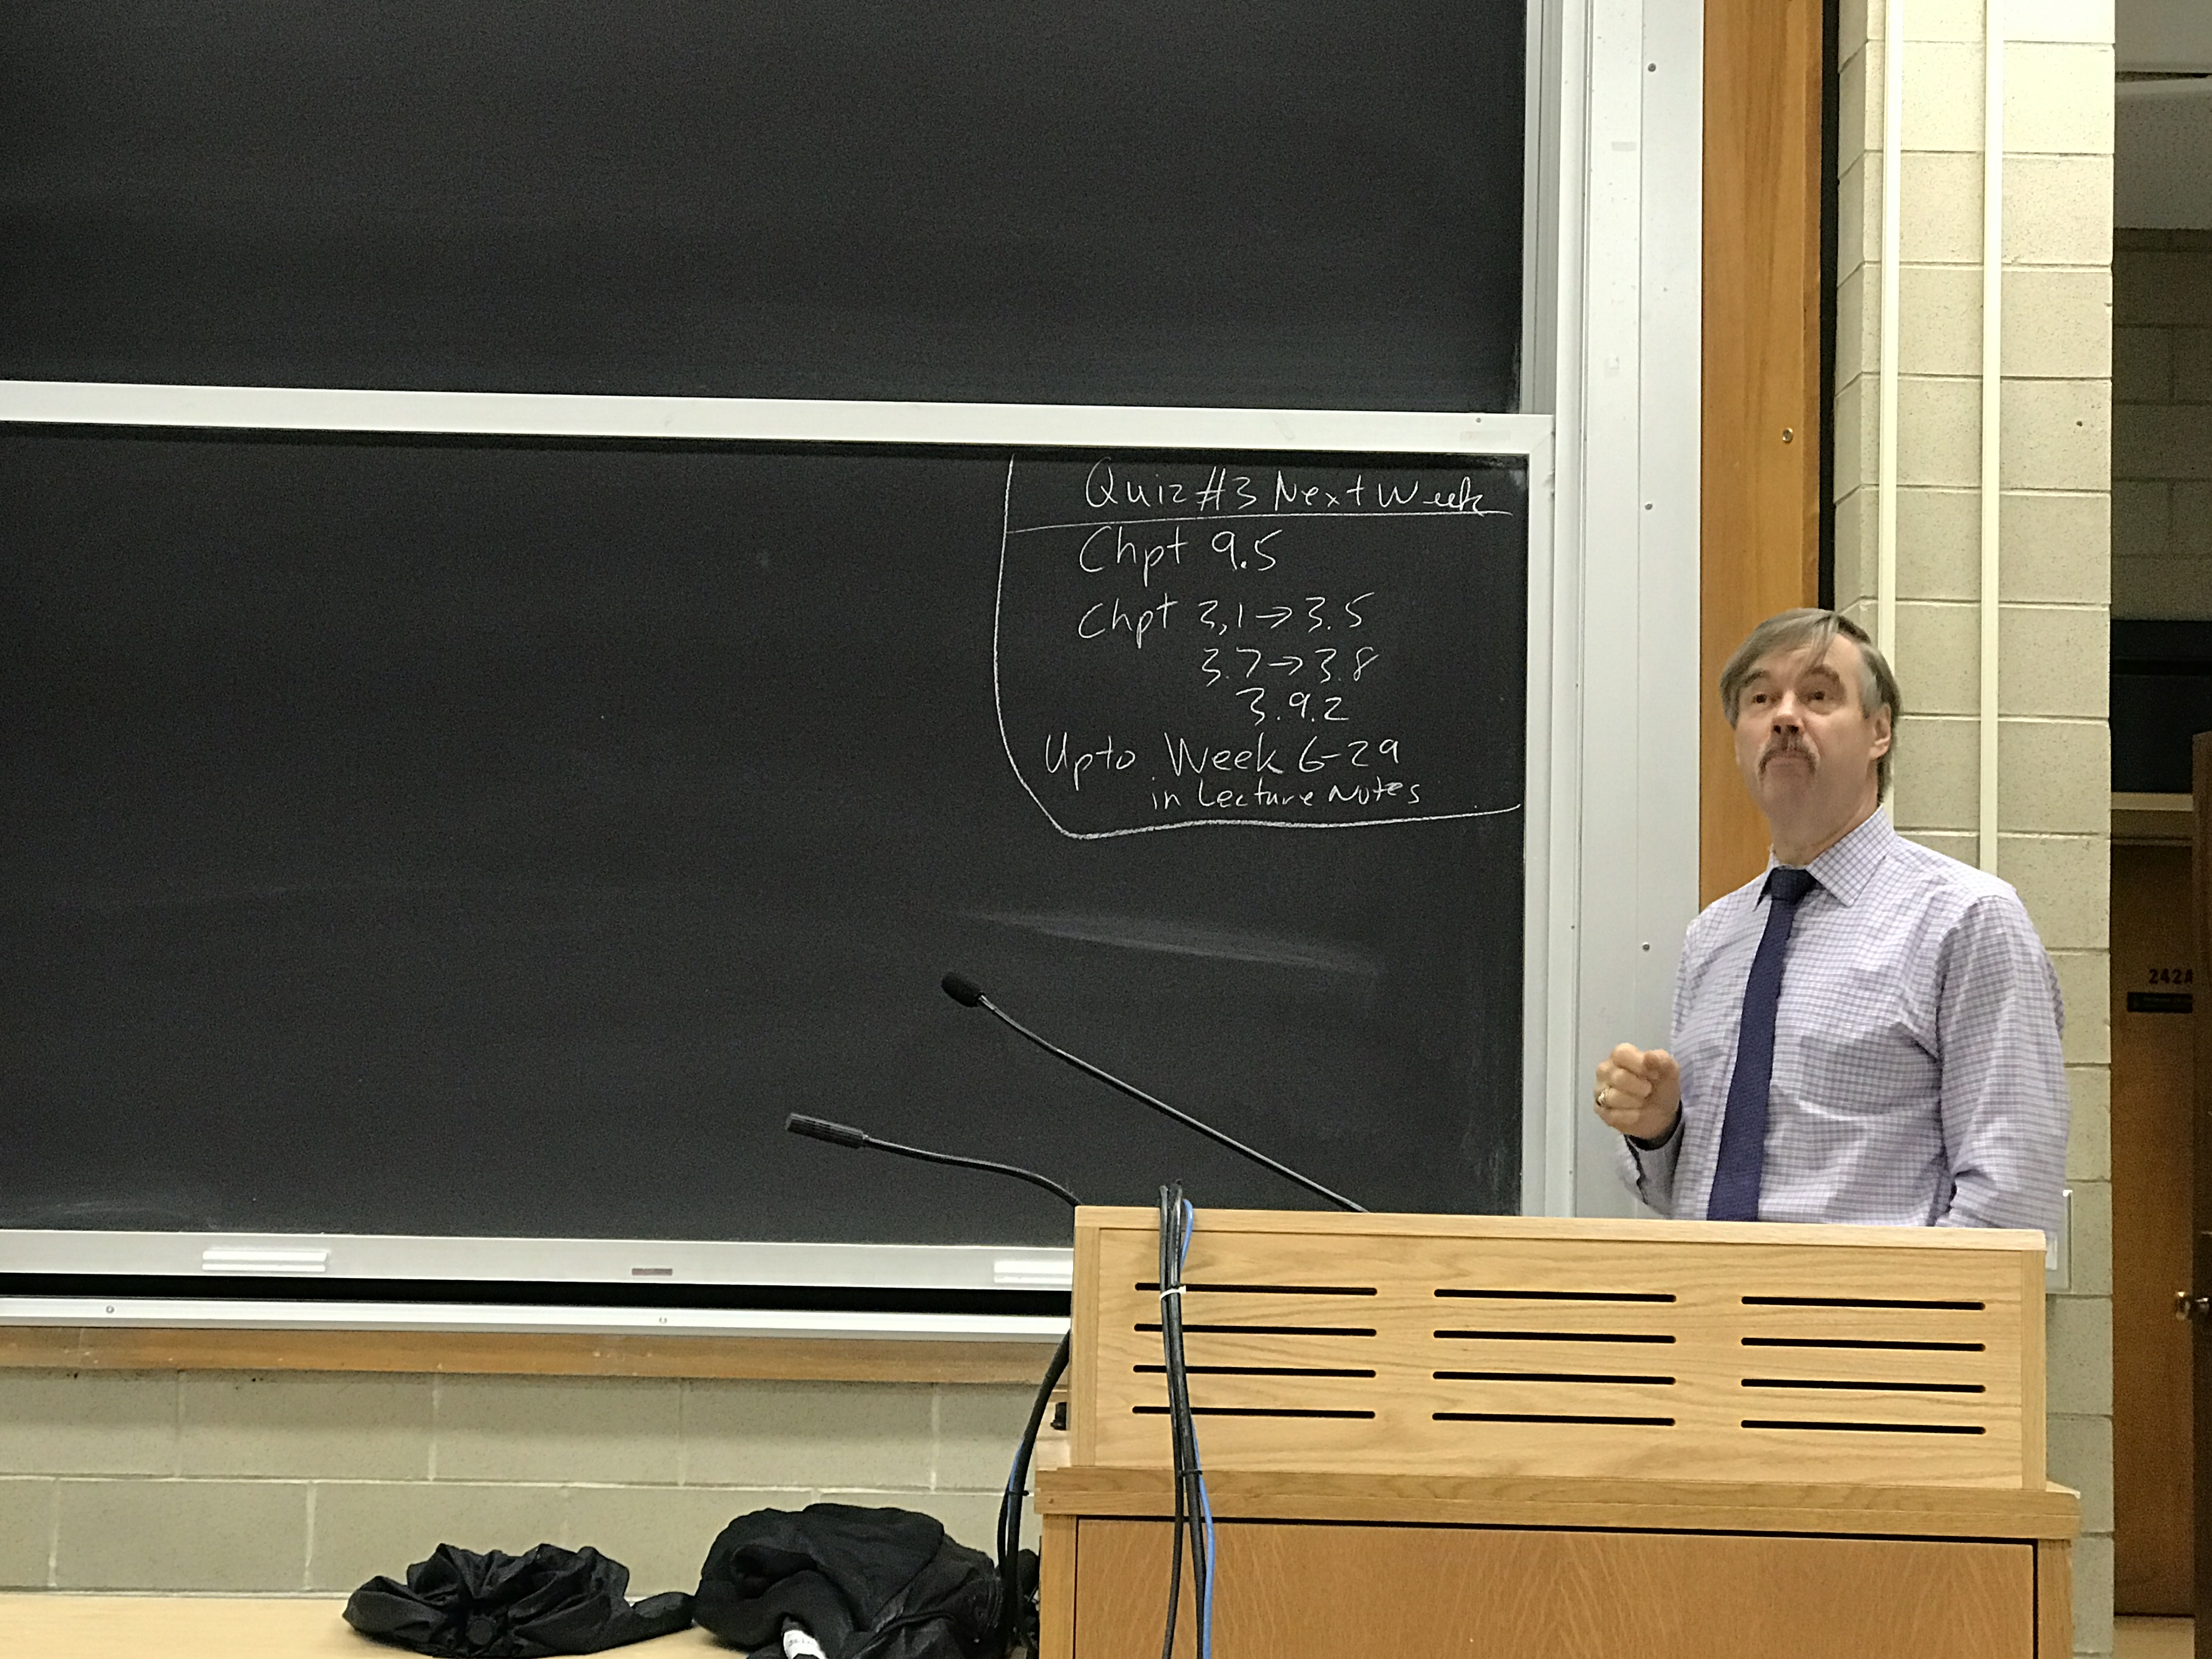 Quiz #3 Next Week
Chpt 9.5
Chpt 3,1→3.5
3.7→3.8
3.9.2
Upto Week 6-29
in Lecture Notes
242A